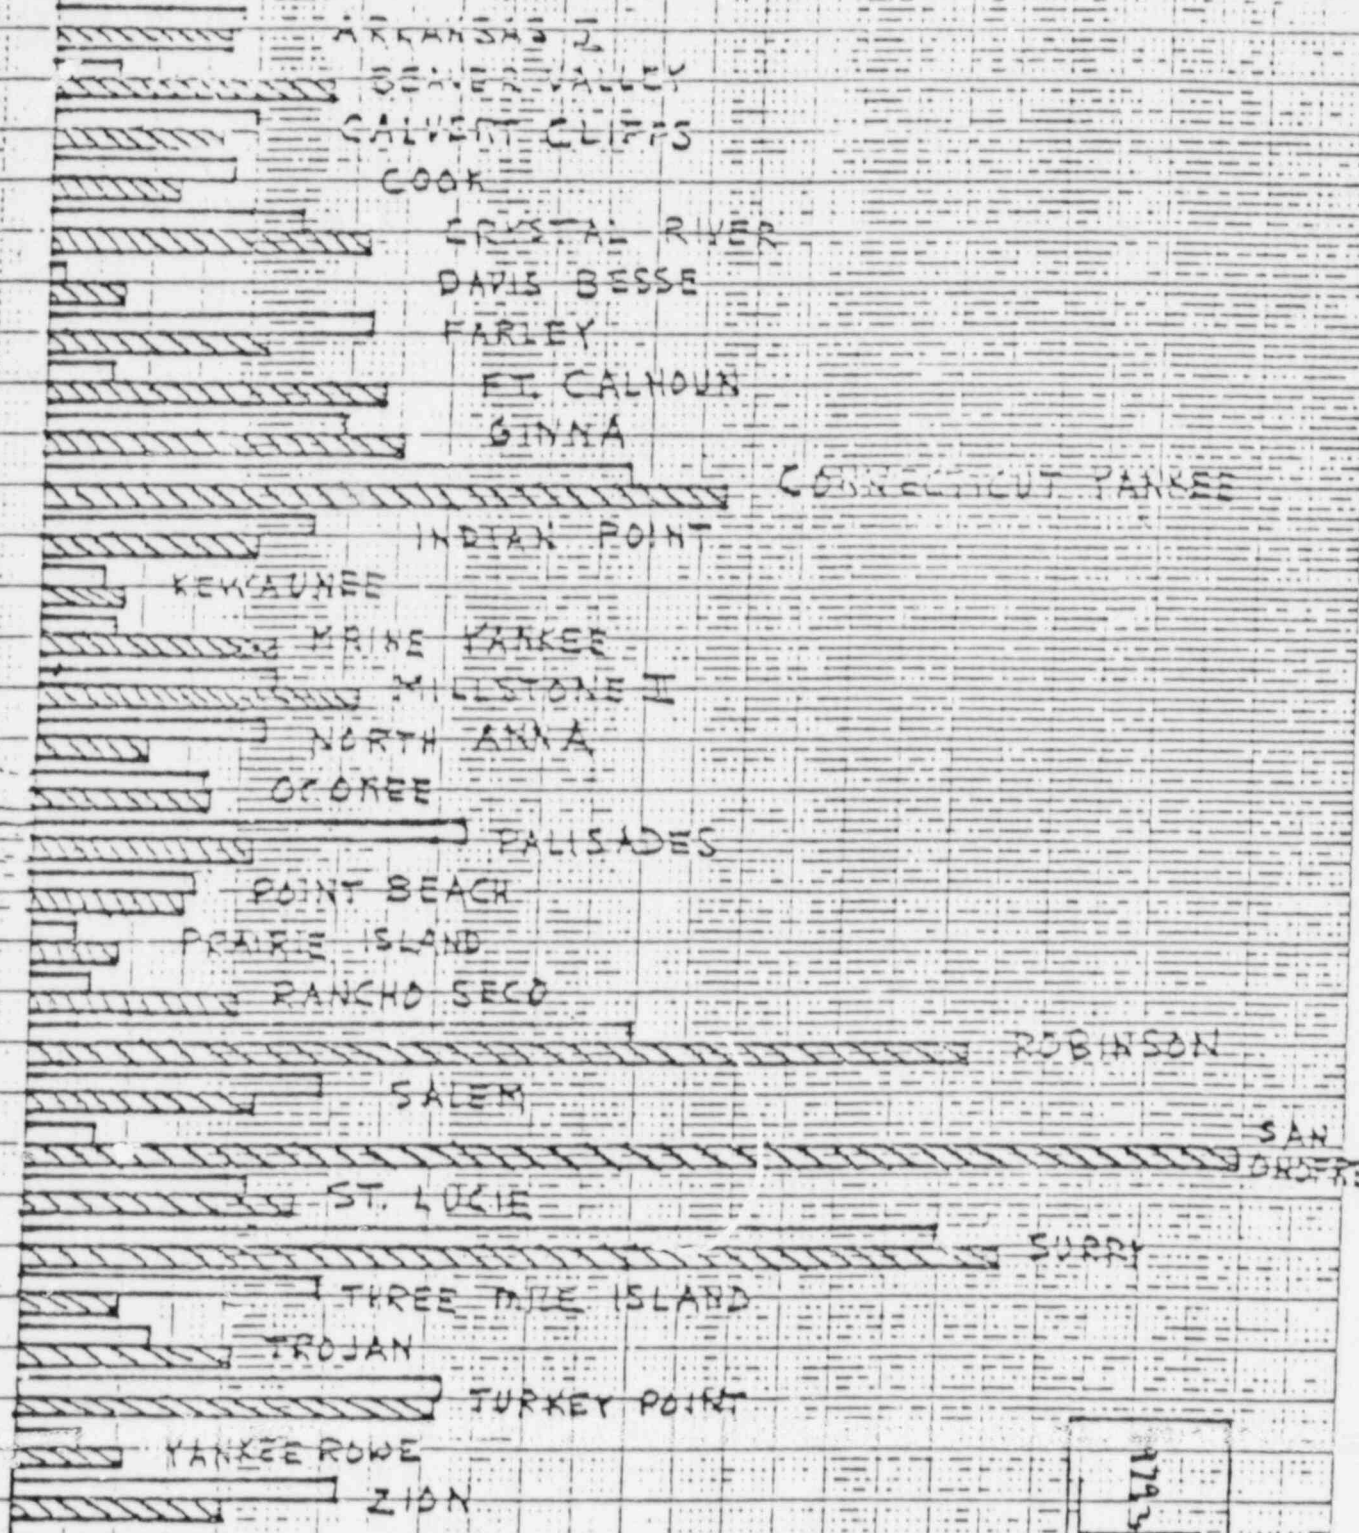 ARKANSAS I
BEAVER VALLEY
CALVERT CLIFFS
COOK
CRYSTAL RIVER
DAVIS BESSE
FARLEY
FT. CALHOUN
GINNA
CONNECTICUT YANKEE
INDIAN POINT
KEWAUNEE
MAINE YANKEE
MILLSTONE II
NORTH ANNA
OCONEE
PALISADES
POINT BEACH
PRAIRIE ISLAND
RANCHO SECO
ROBINSON
SALEM
SAN
ONOFRE
ST. LUCIE
SURRY
THREE MILE ISLAND
TROJAN
TURKEY POINT
YANKEE ROWE
ZION